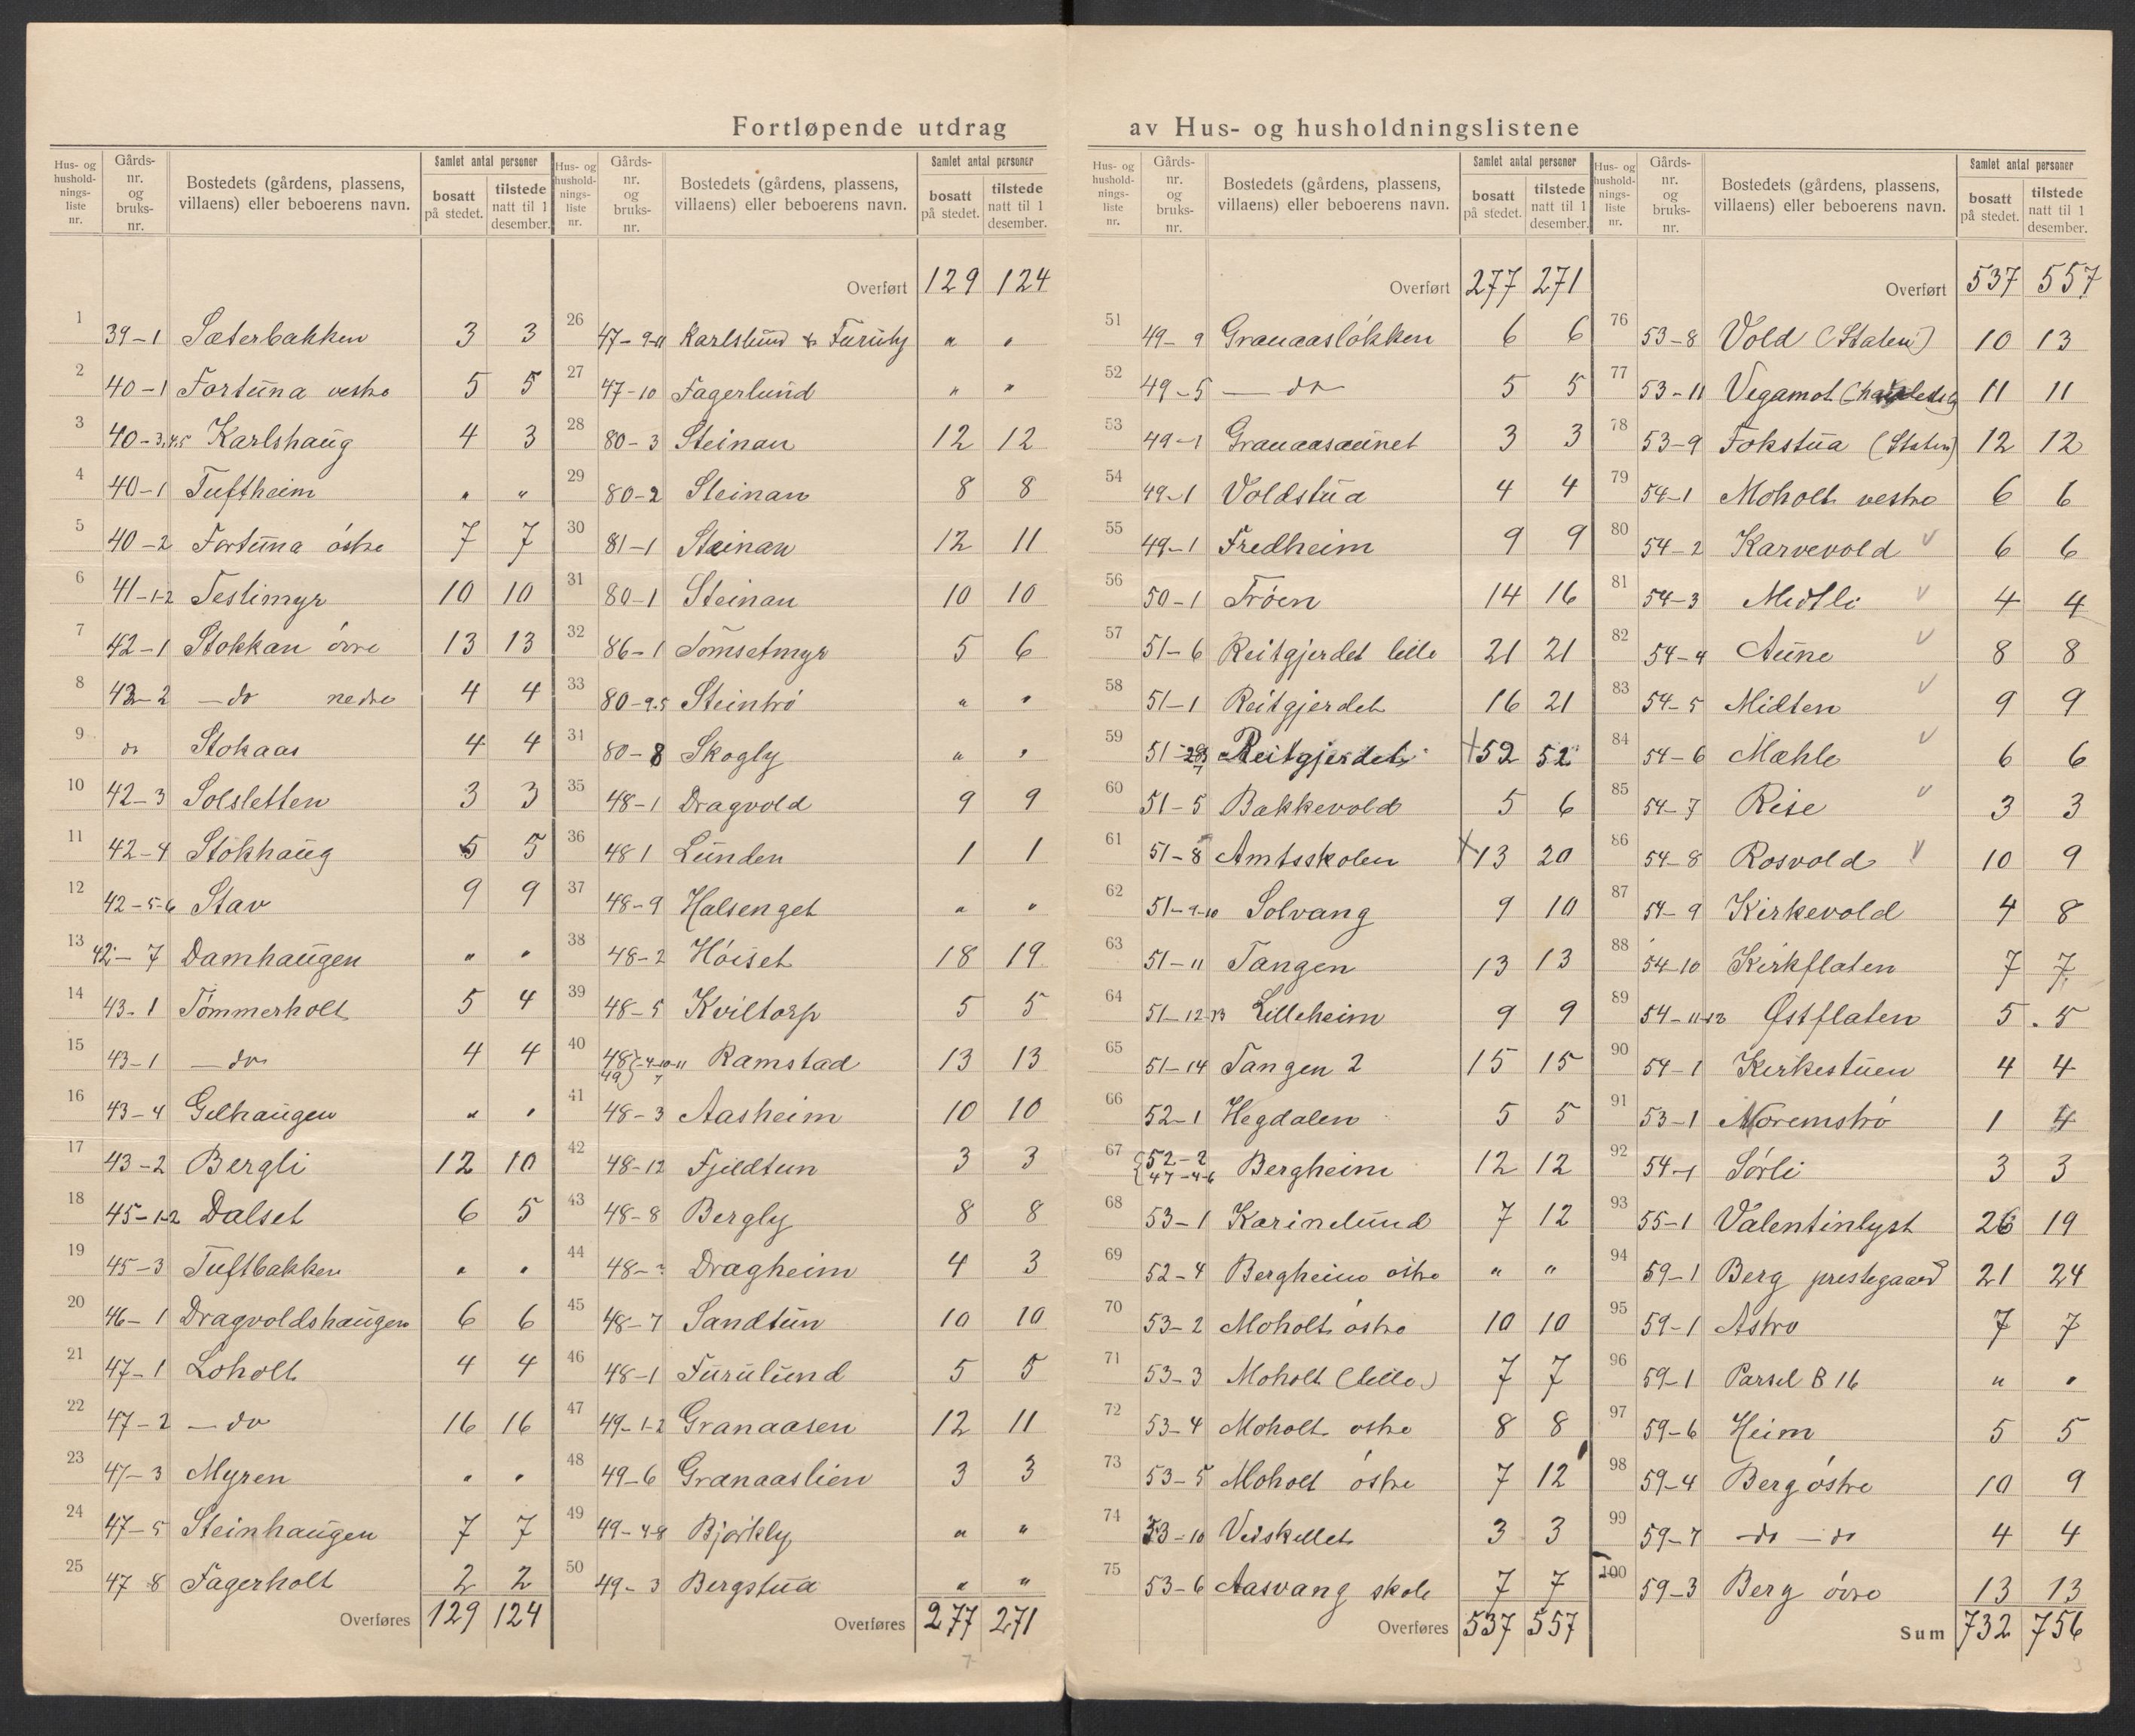 Fortløpende utdrag av Hus- og husholdningslistene
Hus- og hushold-nings-liste nr. | Gårds-nr. og bruks-nr. | Bostedets (gårdens, plassens, villaens) eller beboerens navn. | Samlet antal personer | bosatt på stedet. | tilstede natt til 1 desember.
1 39-1 Sæterbakken 3 3
2 40-1 Fortuna vestre 5 5
3 40-3,4,5 Karlshaug 4 3
4 40-1 Tuftheim " "
5 40-2 Fortuna östre 7 7
6 41-1-2 Testimyr 10 10
7 42-1 Stokkan övre 13 13
8 42-2 —do nedre 4 4
9 do Stokaas 4 4
10 42-3 Solsletten 3 3
11 42-4 Stokhaug 5 5
12 42-5-6 Stav 9 9
13 42-7 Damhaugen " "
14 43-1 Tömmerholt 5 4
15 43-1 —do 4 4
16 43-4 Gilhaugen " "
17 43-2 Bergli 12 10
18 45-1-2 Dalset 6 5
19 45-3 Tuftbakken " "
20 46-1 Dragvoldshaugen 6 6
21 47-1 Loholt 4 4
22 47-2 —do 16 16
23 47-3 Myren " "
24 47-5 Steinhaugen 7 7
25 47 8 Fagerholt 2 2
Overføres 129 124
Hus- og hushold-nings-liste nr. | Gårds-nr. og bruks-nr. | Bostedets (gårdens, plassens, villaens) eller beboerens navn. | Samlet antal personer | bosatt på stedet. | tilstede natt til 1 desember.
Overført 129 124
26 47-9-11 Karlslund & Furuly " "
27 47-10 Fagerlund " "
28 80-3 Steinan 12 12
29 80-2 Steinan 8 8
30 81-1 Steinan 12 11
31 80-1 Steinan 10 10
32 86-1 Tömsetmyr 5 6
33 80-9.5 Steintrö " "
31 80-8 Skogly " "
35 48-1 Dragvold 9 9
36 48 1 Lunden 1 1
37 48-9 Halsenget " "
38 48-2 Höiset 18 19
39 48-5 Kviltorp 5 5
40 48 49 -4-10-11 7 Ramstad 13 13
41 48-3 Aasheim 10 10
42 48-12 Fjeldtun 3 3
43 48-8 Bergly 8 8
44 48-? Dragheim 4 3
45 48-7 Sandtun 10 10
46 48-1 Furulund 5 5
47 49-1-2 Granaasen 12 11
48 49-6 Granaaslien 3 3
49 49-4-8 Bjørkly " "
50 49-3 Bergstua " "
Overføres 277 271
Hus- og hushold-nings-liste nr. | Gårds-nr. og bruks-nr. | Bostedets (gårdens, plassens, villaens) eller beboerens navn. | Samlet antal personer | bosatt på stedet. | tilstede natt til 1 desember.
Overført 277 271
51 49-9 Granaaslökken 6 6
52 49-5 —do 5 5
53 49-1 Granaasaunet 3 3
54 49-1 Voldstua 4 4
55 49-1 Fredheim 9 9
56 50-1 Tröen 14 16
57 51-6 Reitgjerdet lille 21 21
58 51-1 Reitgjerdet 16 21
59 51- Reitgjerdet 52 52
60 51-5 Bakkevold 5 6
61 51-8 Amtsskolen 13 20
62 51-9-10 Solvang 9 10
63 51-11 Tangen 13 13
64 51-12-13 Lilleheim 9 9
65 51-14 Tangen 2 15 15
66 52-1 Hegdalen 5 5
67 52-2 47-4-6 Bergheim 12 12
68 53-1 Karinelund 7 12
69 52-4 Bergheim östre " "
70 53-2 Moholt östre 10 10
71 53-3 Moholt (lille) 7 7
72 53-4 Moholt östre 8 8
73 53-5 Moholt östre 7 12
74 53-10 Veiskillet 3 3
75 53-6 Aasvang skole 7 7
Overføres 537 557
Hus- og hushold-nings-liste nr. | Gårds-nr. og bruks-nr. | Bostedets (gårdens, plassens, villaens) eller beboerens navn. | Samlet antal personer | bosatt på stedet. | tilstede natt til 1 desember.
Overført 537 557
76 53-8 Vold (Staten) 10 13
77 53-11 Vegamot 11 11
78 53-9 Fokstua (Staten) 12 12
79 54-1 Moholt vestre 6 6
80 54-2 Karvevold 6 6
81 54-3 Midtli 4 4
82 54-4 Aune 8 8
83 54-5 Midten 9 9
84 54-6 Mæhle 6 6
85 54-7 Rise 3 3
86 54-8 Rosvold 10 9
87 54-9 Kirkevold 4 8
88 54-10 Kirkflaten 7 7
89 54-11-12 Östflaten 5 5
90 54-1 Kirkestuen 4 4
91 53-1 Moremströ 1 4
92 54-1 Sörli 3 3
93 55-1 Valentinlyst 26 19
94 59-1 Berg prestegaard 21 24
95 59-1 Astro 7 7
96 59-1 Parsel B 16 " "
97 59-6 Heim 5 5
98 59-4 Berg östre 10 9
99 59-7 —do —do 4 4
100 59-3 Berg övre 13 13
Sum 732 756